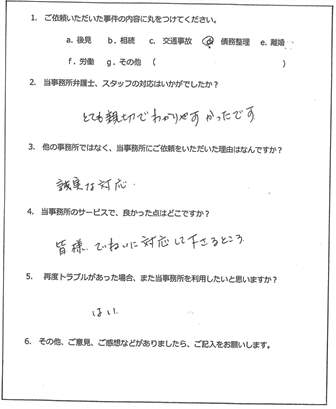 1. ご依頼いただいた事件の内容に丸をつけてください。
a. 後見 b. 相続 c. 交通事故 d. 債務整理 e. 離婚
f. 労働 g. その他 ( )
2. 当事務所弁護士、スタッフの対応はいかがでしたか?
とても親切でわかりやすかったです
3. 他の事務所ではなく、当事務所にご依頼をいただいた理由はなんですか?
誠実な対応.
4. 当事務所のサービスで、良かった点はどこですか?
皆様、ていねいに対応して下さるところ
5. 再度トラブルがあった場合、また当事務所を利用したいと思いますか?
はい
6. その他、ご意見、ご感想などがありましたら、ご記入をお願いします。